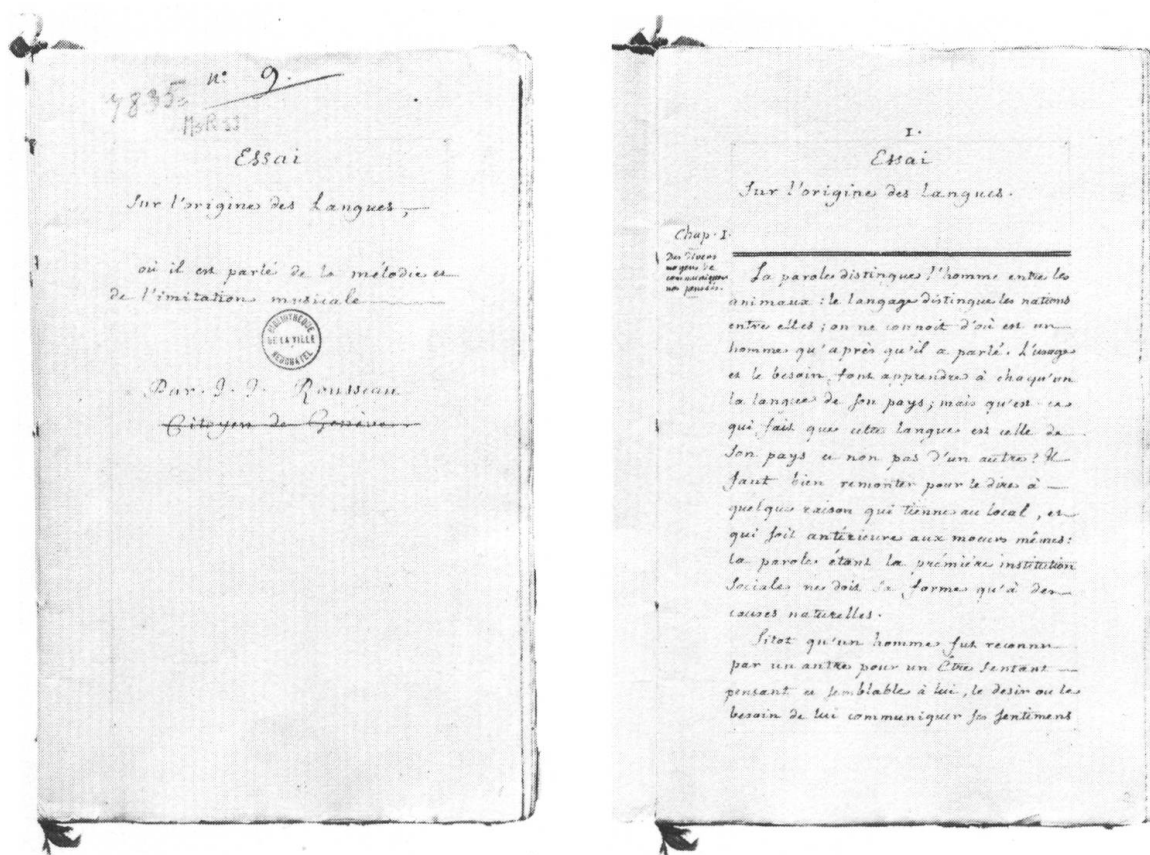 n.° 9.
7835
MsR 11
Essai
Sur l'origine des Langues,
où il est parlé de la mélodie et
de l'imitation musicale
BIBLIOTHEQUE
DE LA VILLE
NEUCHATEL
Par J. J. Rousseau
Citoyen de Genève.
1.
Essai
Sur l'origine des langues.
Chap. I.
Des divers
moyens de
communiquer
nos pensées.
La parole distingue l'homme entre les
animaux : le langage distingue les nations
entre elles ; on ne connoit d'où est un
homme qu'après qu'il a parlé. L'usage
et le besoin font apprendre à chaqu'un
la langue de son pays ; mais qu'est-ce
qui fait que cette langue est celle de
son pays et non pas d'un autre ? Il
faut bien remonter pour le dire à
quelque raison qui tienne au local, et
qui soit antérieure aux mœurs mêmes :
la parole étant la prémiére institution
sociale ne doit sa forme qu'à des
causes naturelles.
Sitot qu'un homme fut reconnu
par un autre pour un Être sentant
pensant et semblable à lui, le desir ou le
besoin de lui communiquer ses sentimens